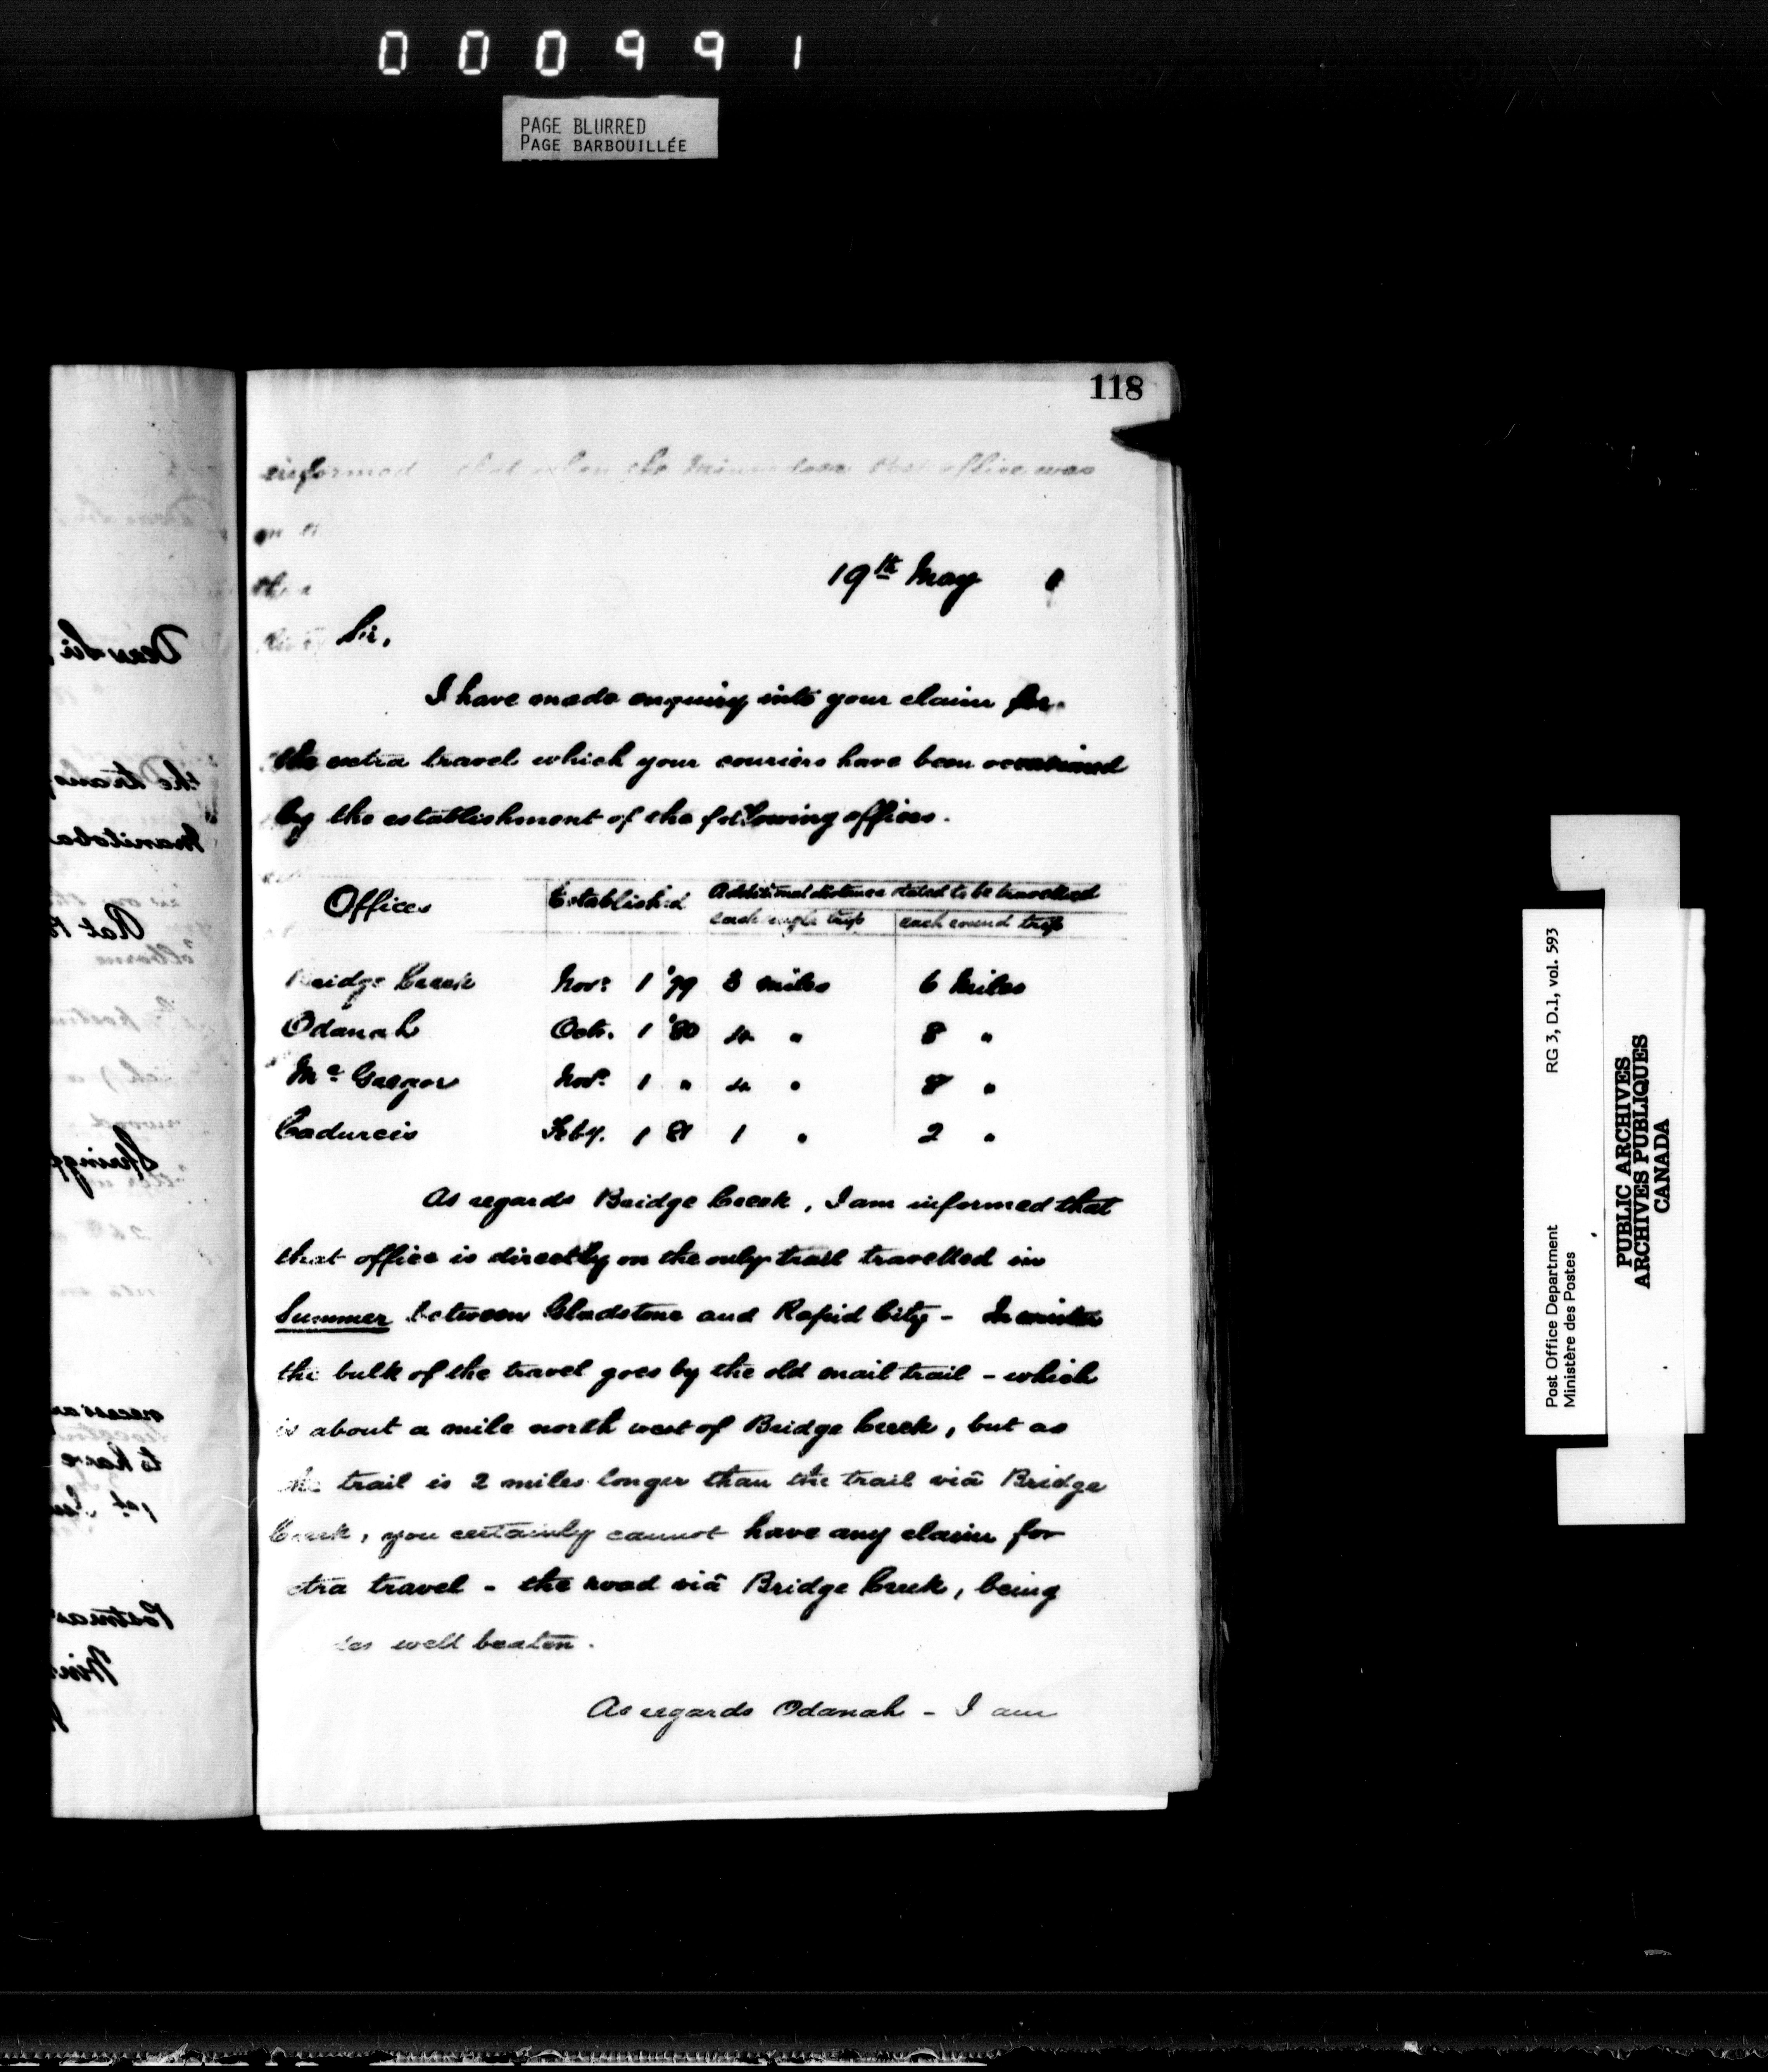 000991
PAGE BLURRED
PAGE BARBOUILLÉE
118
informed that when the Minnedosa Post office was
19th May 1
Sir,
I have made enquiry into your claim for
the extra travel which your couriers have been occasioned
by the establishment of the following offices.
Offices Established Additional distance stated to be travelled
each single trip each round trip
Bridge Creek Novr 1 '79 3 miles 6 Miles
Odanah Octr. 1 '80 4 " 8 "
Mc Gregor Novr 1 " 4 " 8 "
Cadurcis Feby. 1 81 1 " 2 "
As regards Bridge Creek, I am informed that
that office is directly on the only trail travelled in
Summer between Gladstone and Rapid City - In winter
the bulk of the travel goes by the old mail trail - which
is about a mile north west of Bridge Creek, but as
the trail is 2 miles longer than the trail viâ Bridge
Creek, you certainly cannot have any claim for
xtra travel - the road viâ Bridge Creek, being
well beaten.
As regards Odanah - I am
Dear Sir,
the trans
Manitoba
Rat P
Spring
necessar
to have
1st
Postmas
Win
Post Office Department
Ministère des Postes
RG 3, D.1, vol. 593
PUBLIC ARCHIVES
ARCHIVES PUBLIQUES
CANADA